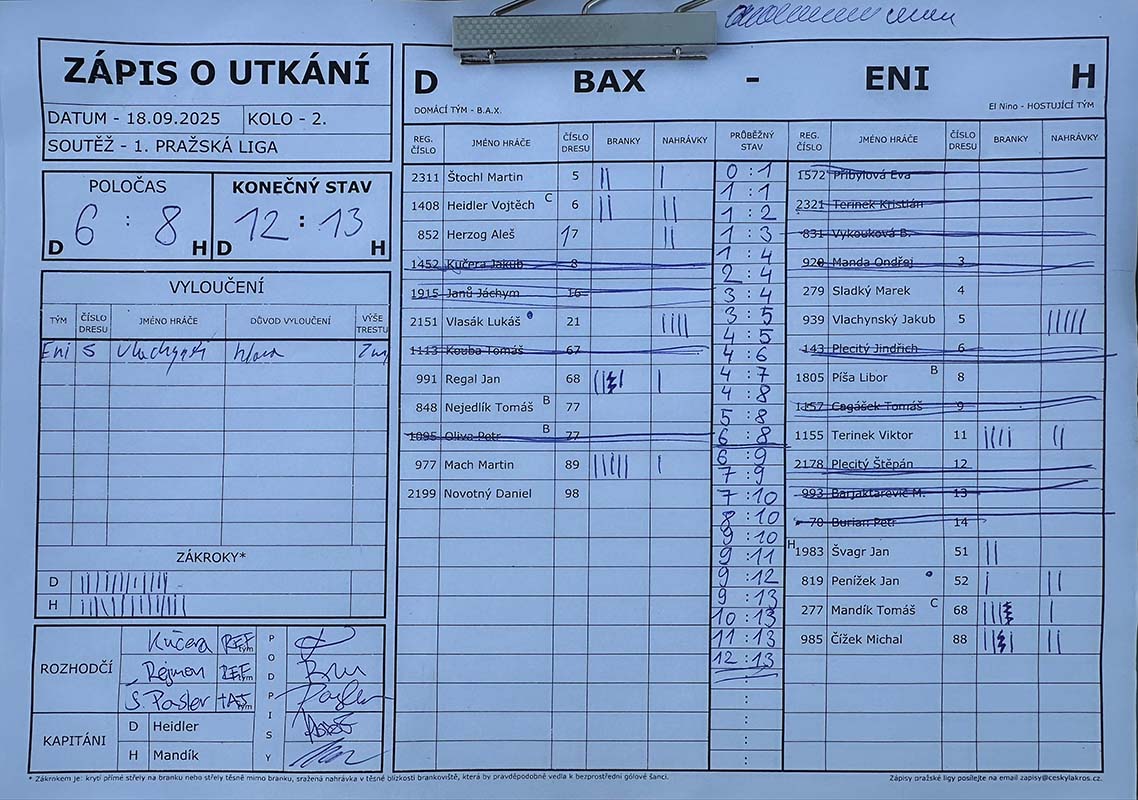 ZÁPIS O UTKÁNÍ
DATUM - 18.09.2025 KOLO - 2.
SOUTĚŽ - 1. PRAŽSKÁ LIGA
POLOČAS KONEČNÝ STAV
6 : 8 12 : 13
D H D H
VYLOUČENÍ
TÝM ČÍSLO DRESU JMÉNO HRÁČE DŮVOD VYLOUČENÍ VÝŠE TRESTU
Eni 5 Vlachynský hlava
ZÁKROKY*
D
H
ROZHODČÍ
Kučera REF
Rejman REF
S. Pasler
PODPISY
KAPITÁNI
D Heidler
H Mandík
D BAX - ENI H
DOMÁCÍ TÝM - B.A.X. El Nino - HOSTUJÍCÍ TÝM
REG. ČÍSLO JMÉNO HRÁČE ČÍSLO DRESU BRANKY NAHRÁVKY PRŮBĚŽNÝ STAV REG. ČÍSLO JMÉNO HRÁČE ČÍSLO DRESU BRANKY NAHRÁVKY
2311 Štochl Martin 5
1408 Heidler Vojtěch C 6
852 Herzog Aleš 17
1452 Kučera Jakub 8
1915 Janů Jáchym 16
2151 Vlasák Lukáš 21
1113 Kouba Tomáš 67
991 Regal Jan 68
848 Nejedlík Tomáš B 77
1095 Oliva Petr B 77
977 Mach Martin 89
2199 Novotný Daniel 98
0 : 1
1 : 1
1 : 2
1 : 3
1 : 4
2 : 4
3 : 4
3 : 5
4 : 5
4 : 6
4 : 7
4 : 8
5 : 8
6 : 8
6 : 9
7 : 9
7 : 10
8 : 10
9 : 10
9 : 11
9 : 12
9 : 13
10 : 13
11 : 13
12 : 13
1572 Přibylová Eva
2321 Terinek Kristián
831 Vykouková B.
920 Manda Ondřej 3
279 Sladký Marek 4
939 Vlachynský Jakub 5
143 Plecitý Jindřich 6
1805 Píša Libor B 8
1157 Cagášek Tomáš 9
1155 Terinek Viktor 11
2178 Plecitý Štěpán 12
993 Barjaktarevič M. 13
70 Burian Petr 14
H 1983 Švagr Jan 51
819 Penížek Jan 52
277 Mandík Tomáš C 68
985 Čížek Michal 88
* Zákrokem je: krytí přímé střely na branku neho střely těsně mimo branku, sražená nahrávka v těsné blízkosti brankoviště, která by pravděpodobně vedla k bezprostřední gólové šanci.
Zápisy pražské ligy posílejte na email zapisy@ceskylakros.cz.